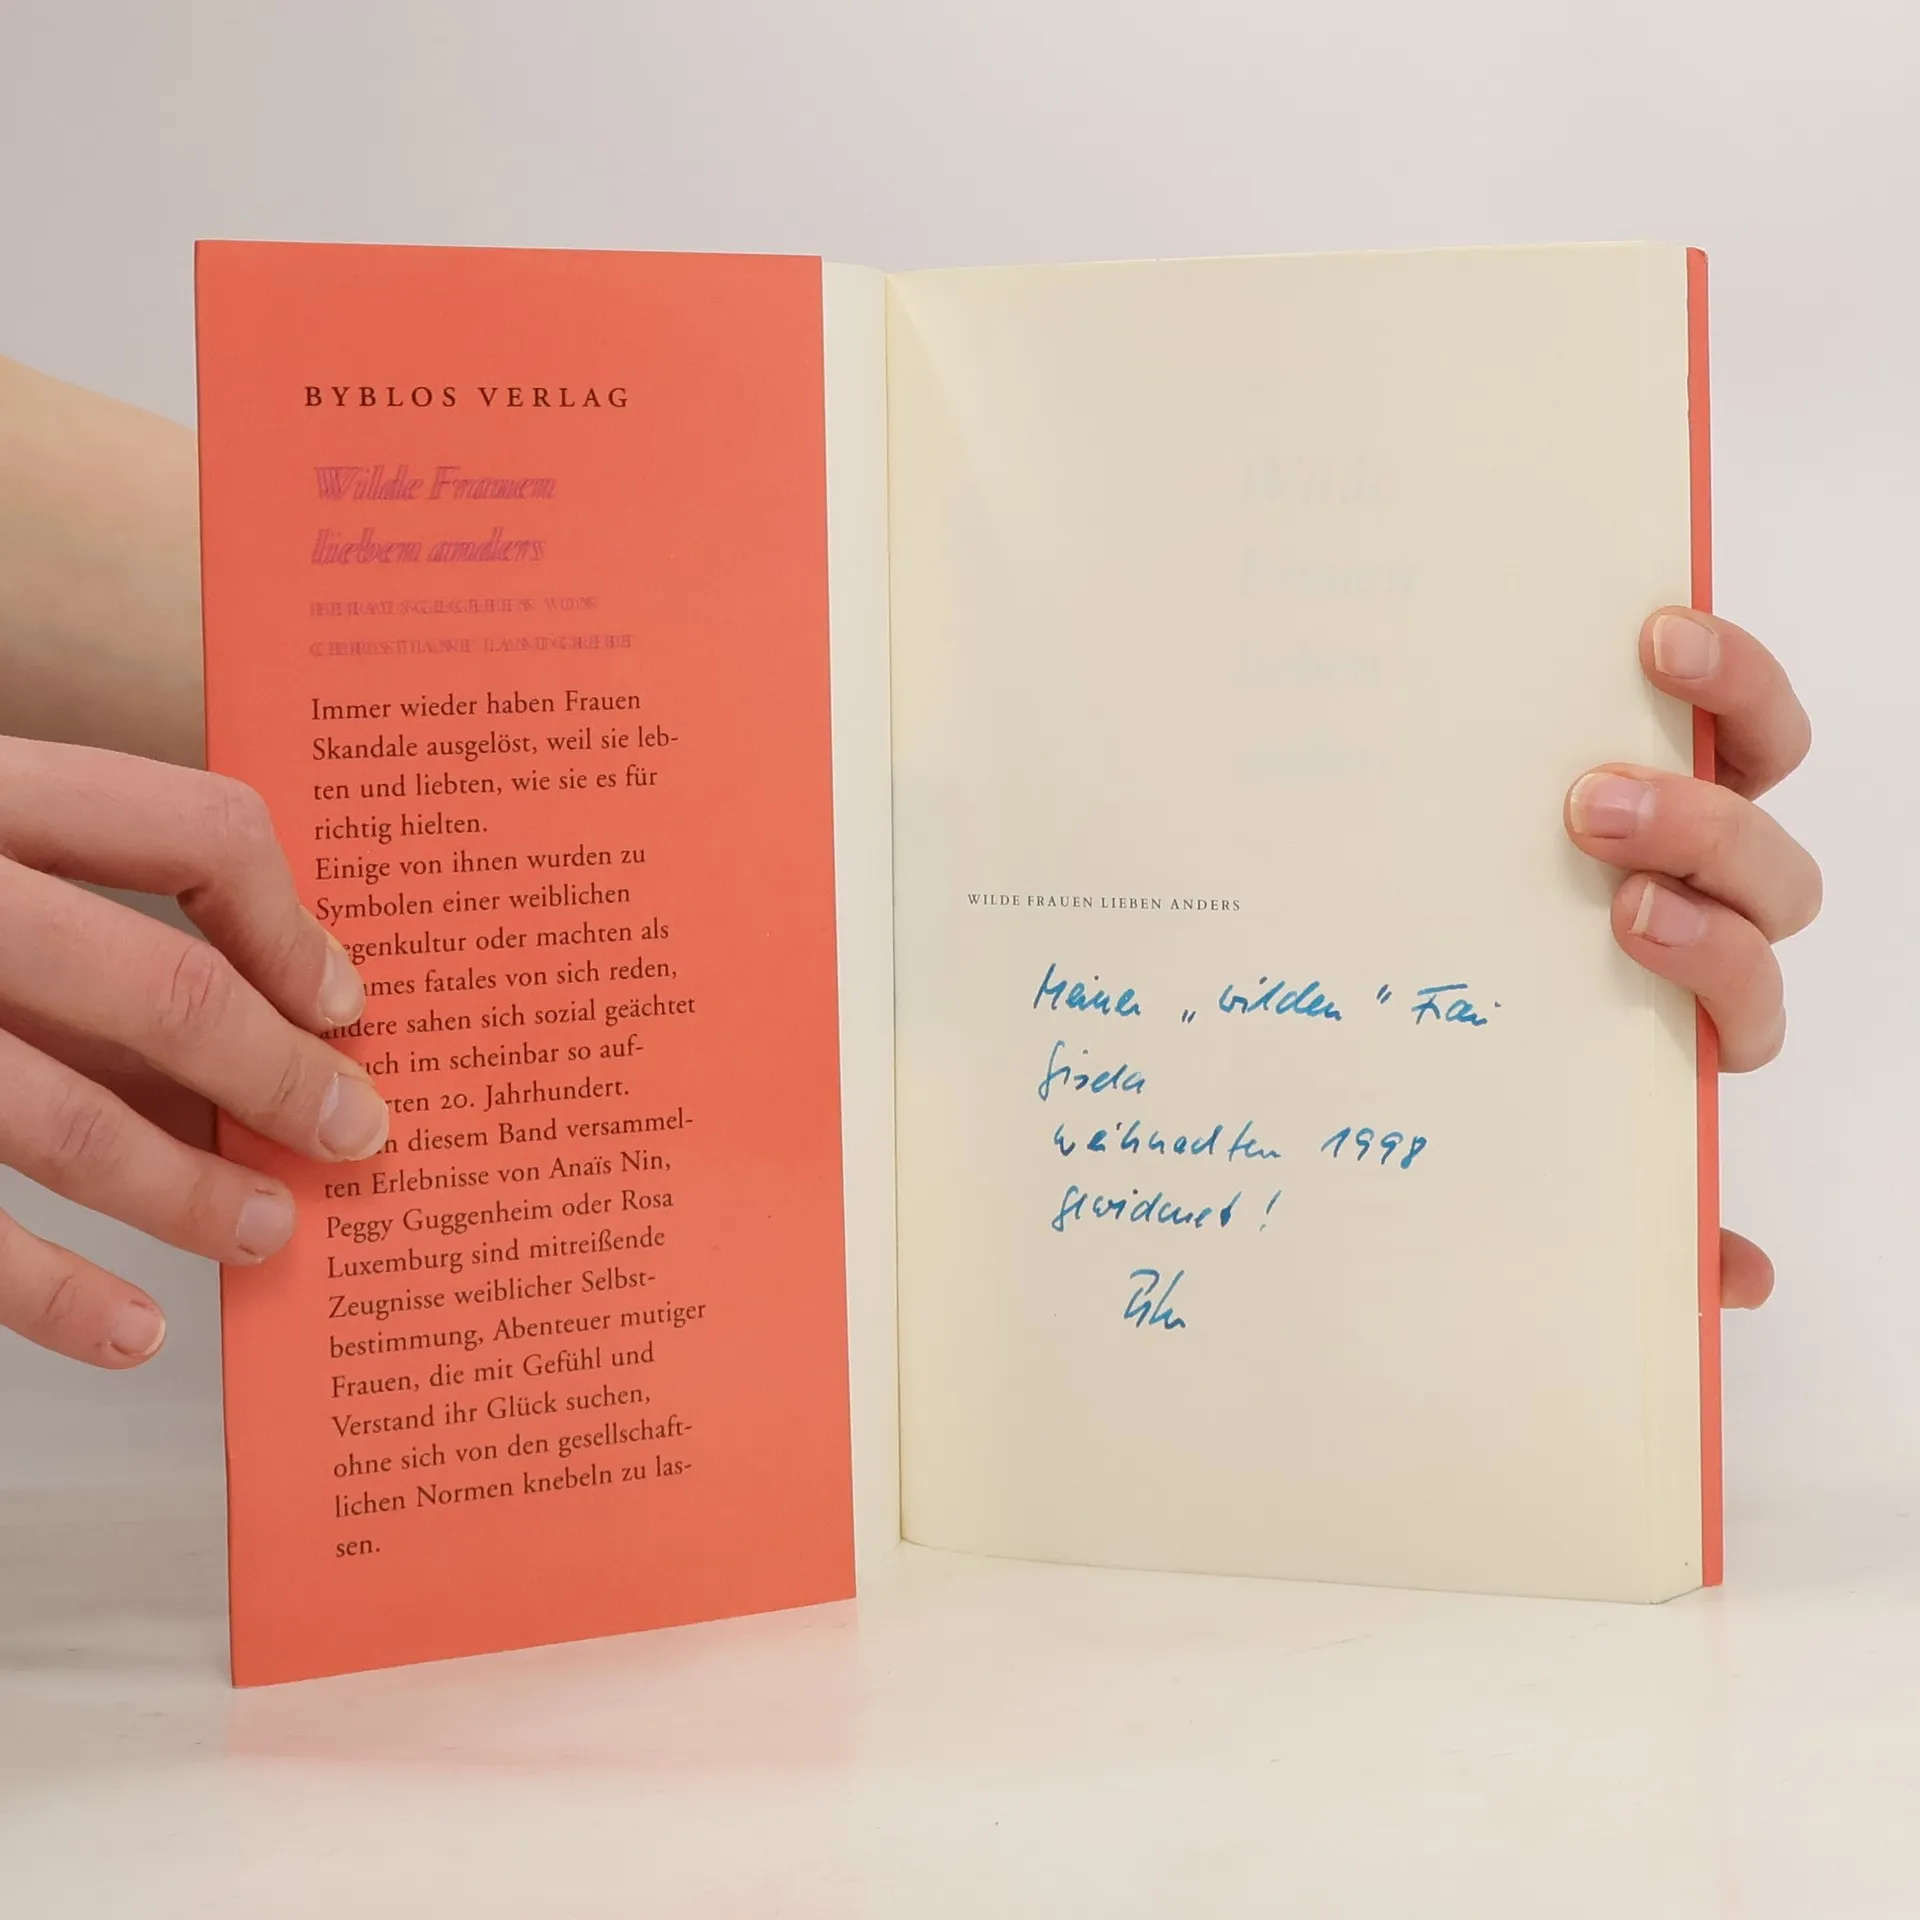 BYBLOS VERLAG
Wilde Frauen
lieben anders
HERAUSGEGEBEN VON
CHRISTIANE LANDGREBE
Immer wieder haben Frauen
Skandale ausgelöst, weil sie leb-
ten und liebten, wie sie es für
richtig hielten.
Einige von ihnen wurden zu
Symbolen einer weiblichen
egenkultur oder machten als
mes fatales von sich reden,
andere sahen sich sozial geächtet
uch im scheinbar so auf-
rten 20. Jahrhundert.
n diesem Band versammel-
ten Erlebnisse von Anaïs Nin,
Peggy Guggenheim oder Rosa
Luxemburg sind mitreißende
Zeugnisse weiblicher Selbst-
bestimmung, Abenteuer mutiger
Frauen, die mit Gefühl und
Verstand ihr Glück suchen,
ohne sich von den gesellschaft-
lichen Normen knebeln zu las-
sen.
Wilde
Frauen
lieben
anders
WILDE FRAUEN LIEBEN ANDERS
Meiner „wilden" Frau
Gisela
Weihnachten 1998
gewidmet!